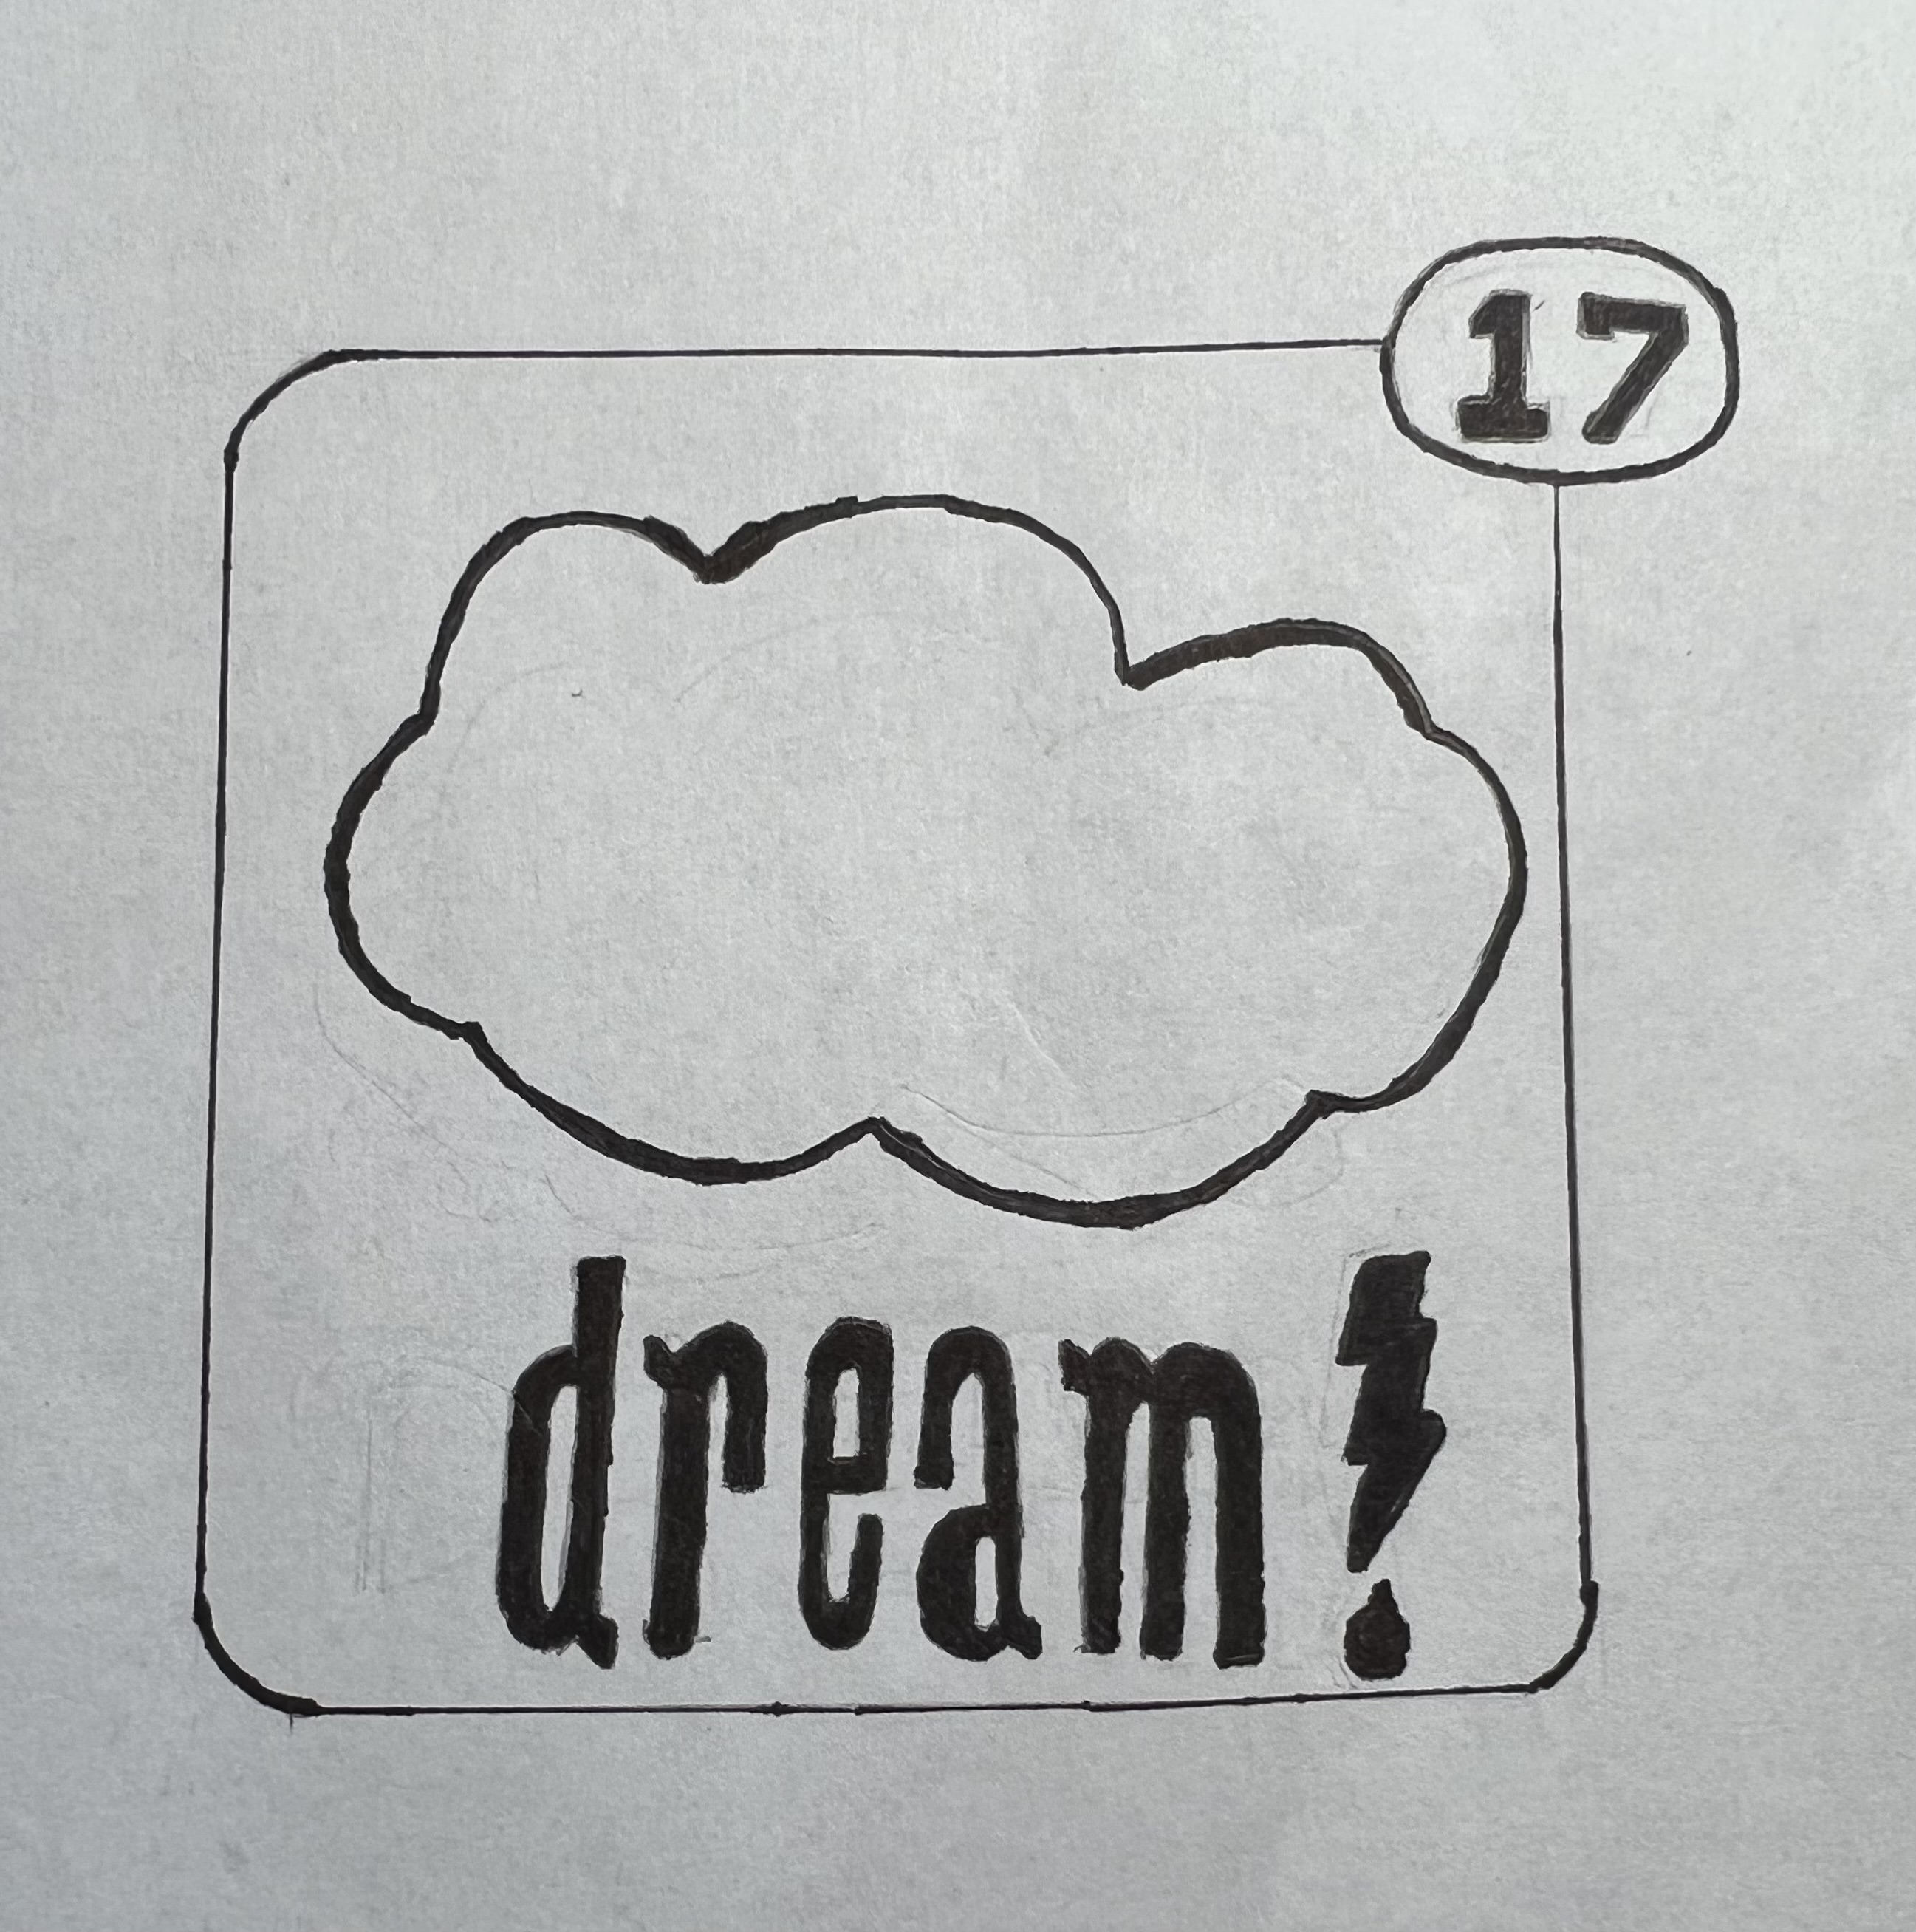 17
dream!